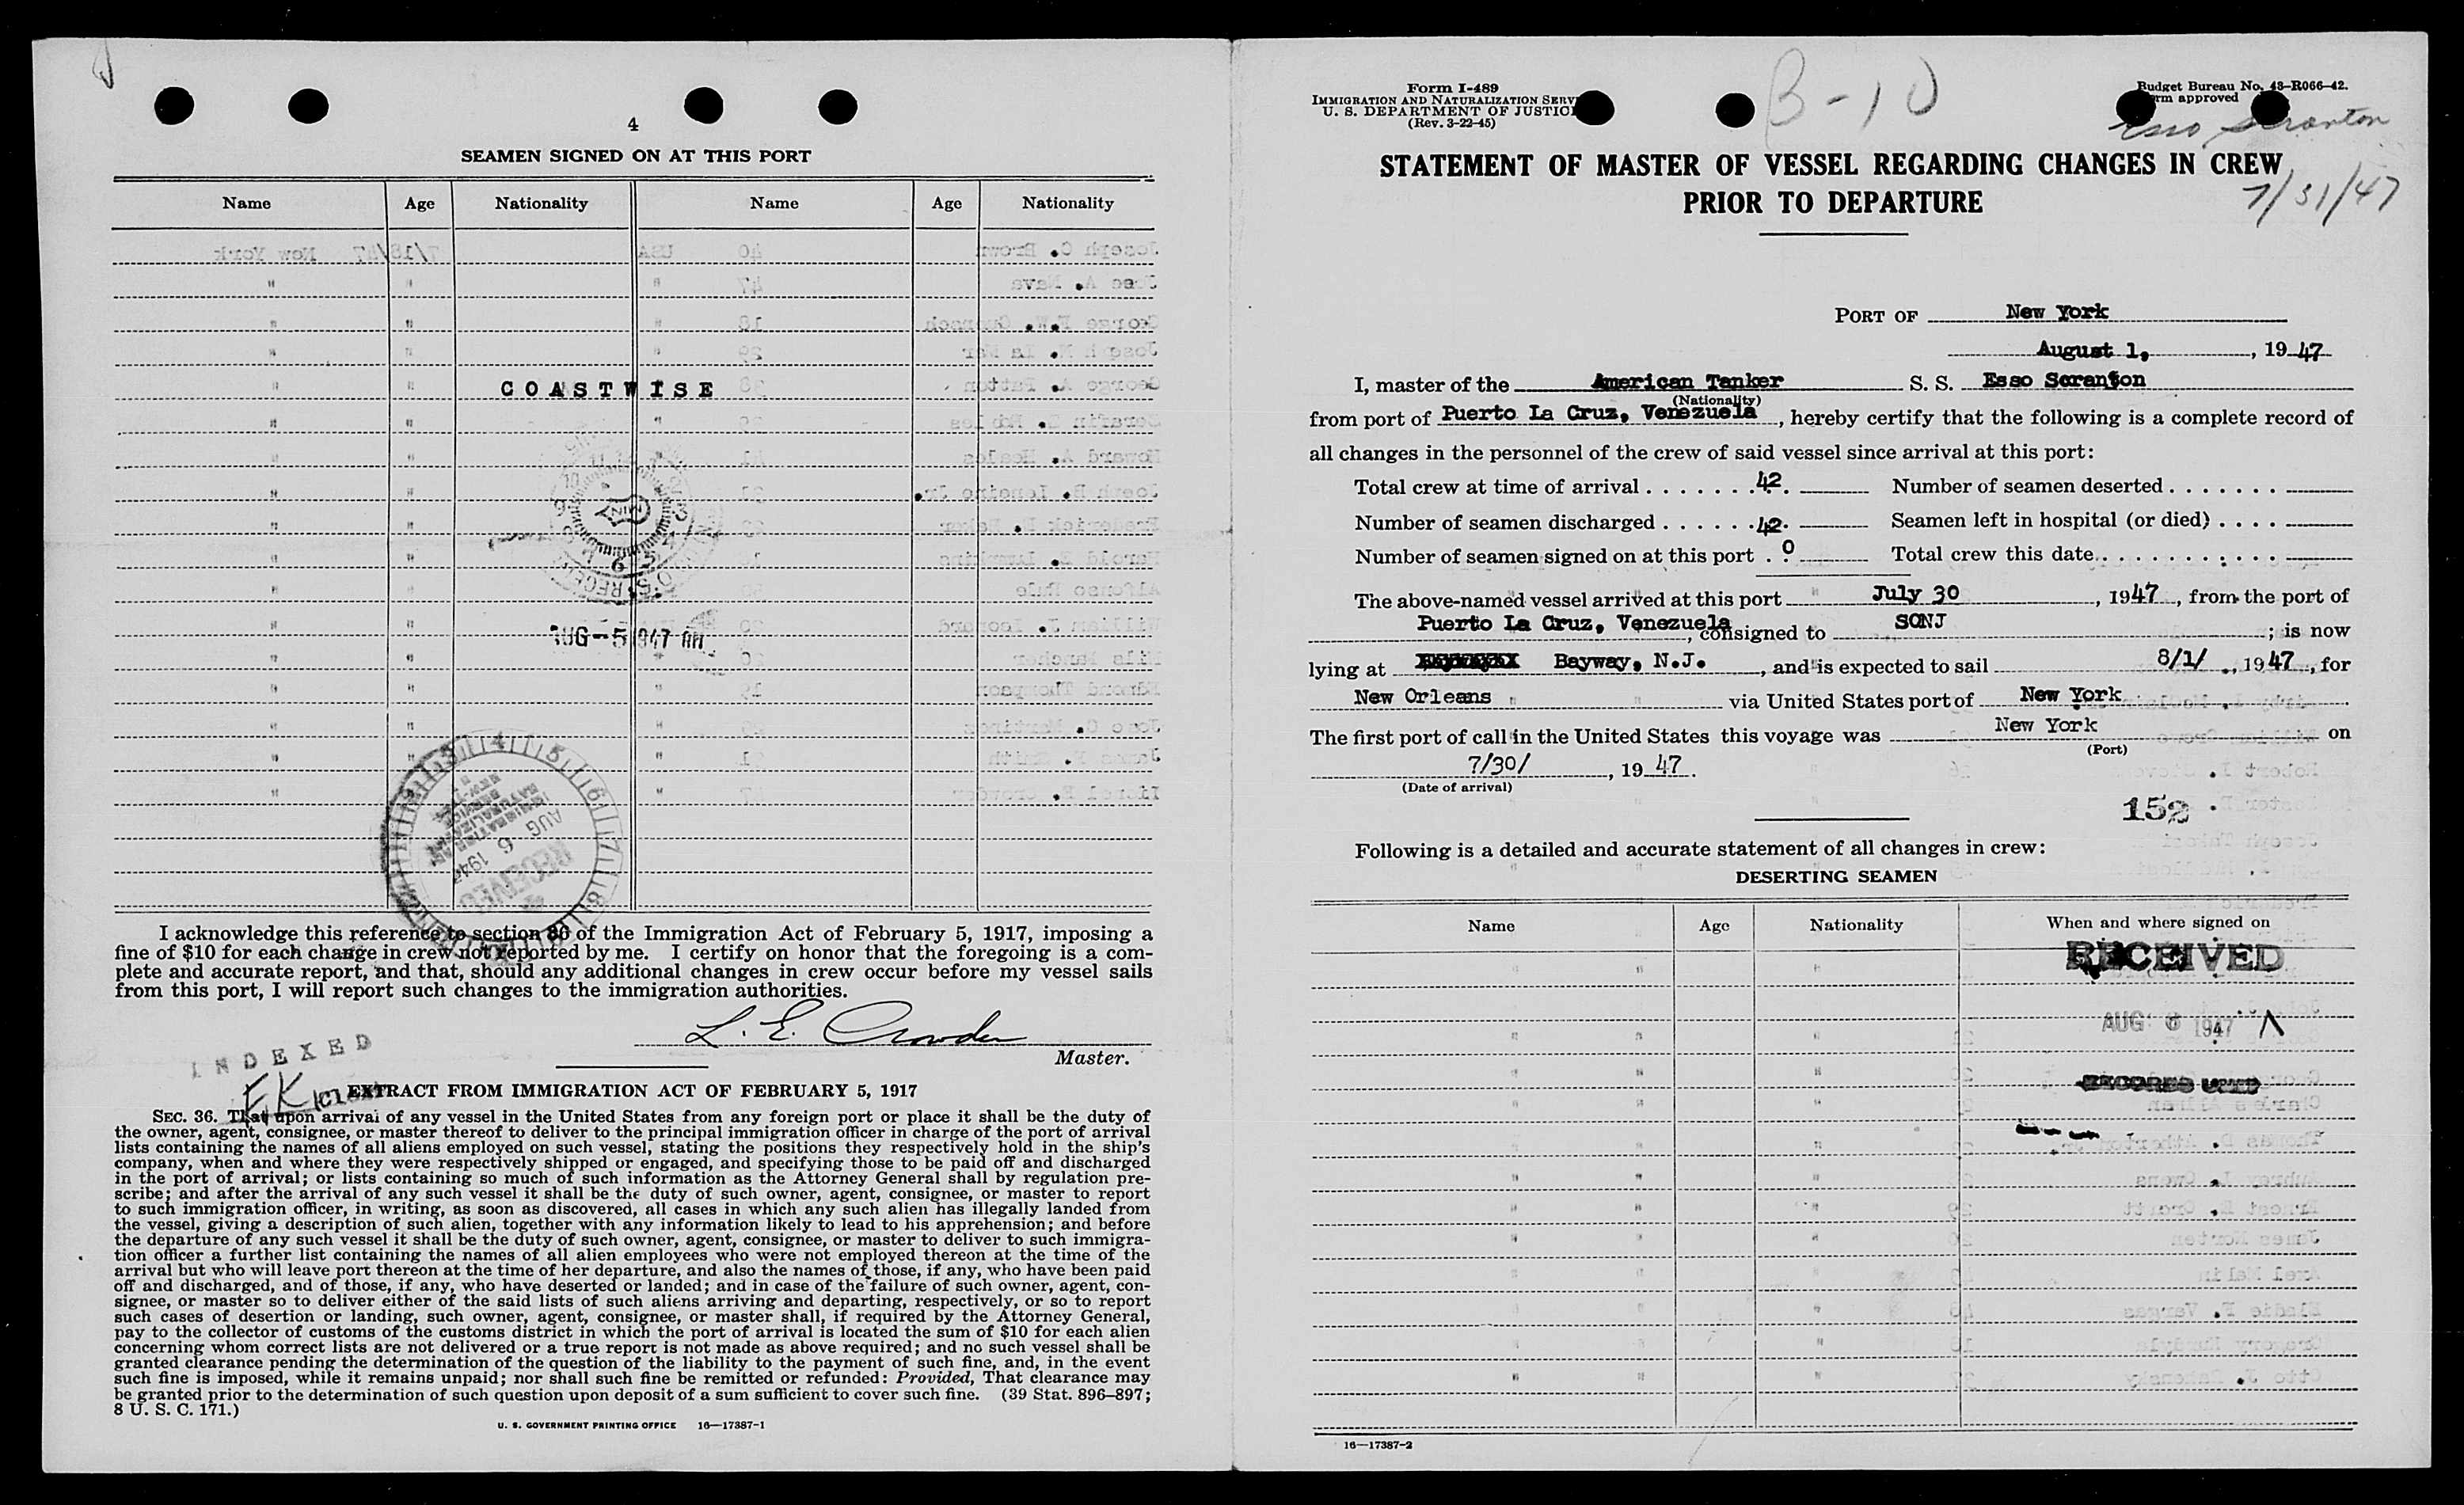 4
SEAMEN SIGNED ON AT THIS PORT
Name Age Nationality Name Age Nationality
COASTWISE
AUG - 5 1947 AM
RECEIVED
AUG 6 1947
I acknowledge this reference to section 36 of the Immigration Act of February 5, 1917, imposing a
fine of $10 for each change in crew not reported by me. I certify on honor that the foregoing is a com-
plete and accurate report, and that, should any additional changes in crew occur before my vessel sails
from this port, I will report such changes to the immigration authorities.
L. E. Crowder
Master.
INDEXED
EK
EXTRACT FROM IMMIGRATION ACT OF FEBRUARY 5, 1917
SEC. 36. That upon arrival of any vessel in the United States from any foreign port or place it shall be the duty of
the owner, agent, consignee, or master thereof to deliver to the principal immigration officer in charge of the port of arrival
lists containing the names of all aliens employed on such vessel, stating the positions they respectively hold in the ship's
company, when and where they were respectively shipped or engaged, and specifying those to be paid off and discharged
in the port of arrival; or lists containing so much of such information as the Attorney General shall by regulation pre-
scribe; and after the arrival of any such vessel it shall be the duty of such owner, agent, consignee, or master to report
to such immigration officer, in writing, as soon as discovered, all cases in which any such alien has illegally landed from
the vessel, giving a description of such alien, together with any information likely to lead to his apprehension; and before
the departure of any such vessel it shall be the duty of such owner, agent, consignee, or master to deliver to such immigra-
tion officer a further list containing the names of all alien employees who were not employed thereon at the time of the
arrival but who will leave port thereon at the time of her departure, and also the names of those, if any, who have been paid
off and discharged, and of those, if any, who have deserted or landed; and in case of the failure of such owner, agent, con-
signee, or master so to deliver either of the said lists of such aliens arriving and departing, respectively, or so to report
such cases of desertion or landing, such owner, agent, consignee, or master shall, if required by the Attorney General,
pay to the collector of customs of the customs district in which the port of arrival is located the sum of $10 for each alien
concerning whom correct lists are not delivered or a true report is not made as above required; and no such vessel shall be
granted clearance pending the determination of the question of the liability to the payment of such fine, and, in the event
such fine is imposed, while it remains unpaid; nor shall such fine be remitted or refunded: Provided, That clearance may
be granted prior to the determination of such question upon deposit of a sum sufficient to cover such fine. (39 Stat. 896–897;
8 U. S. C. 171.)
U. S. GOVERNMENT PRINTING OFFICE 16—17387-1
Form I-489
IMMIGRATION AND NATURALIZATION SERV
U. S. DEPARTMENT OF JUSTIC
(Rev. 3-22-45)
B-10
Budget Bureau No. 43-R066-42.
rm approved
Esso Scranton
7/31/47
STATEMENT OF MASTER OF VESSEL REGARDING CHANGES IN CREW
PRIOR TO DEPARTURE
PORT OF New York
August 1, , 1947
I, master of the American Tanker S. S. Esso Scranton
(Nationality)
from port of Puerto La Cruz, Venezuela, hereby certify that the following is a complete record of
all changes in the personnel of the crew of said vessel since arrival at this port:
Total crew at time of arrival . . . . . . . 42. Number of seamen deserted . . . . . . .
Number of seamen discharged . . . . . . 42. Seamen left in hospital (or died) . . . .
Number of seamen signed on at this port . 0 Total crew this date . . . . . . . . . . .
The above-named vessel arrived at this port July 30, 1947, from the port of
Puerto La Cruz, Venezuela, consigned to SONJ ; is now
lying at Bayway, N.J., and is expected to sail 8/1/, 1947, for
New Orleans via United States port of New York
The first port of call in the United States this voyage was New York on
(Port)
7/30/, 1947.
(Date of arrival)
152
Following is a detailed and accurate statement of all changes in crew:
DESERTING SEAMEN
Name Age Nationality When and where signed on
RECEIVED
AUG 6 1947
RECORDS UNIT
16—17387-2